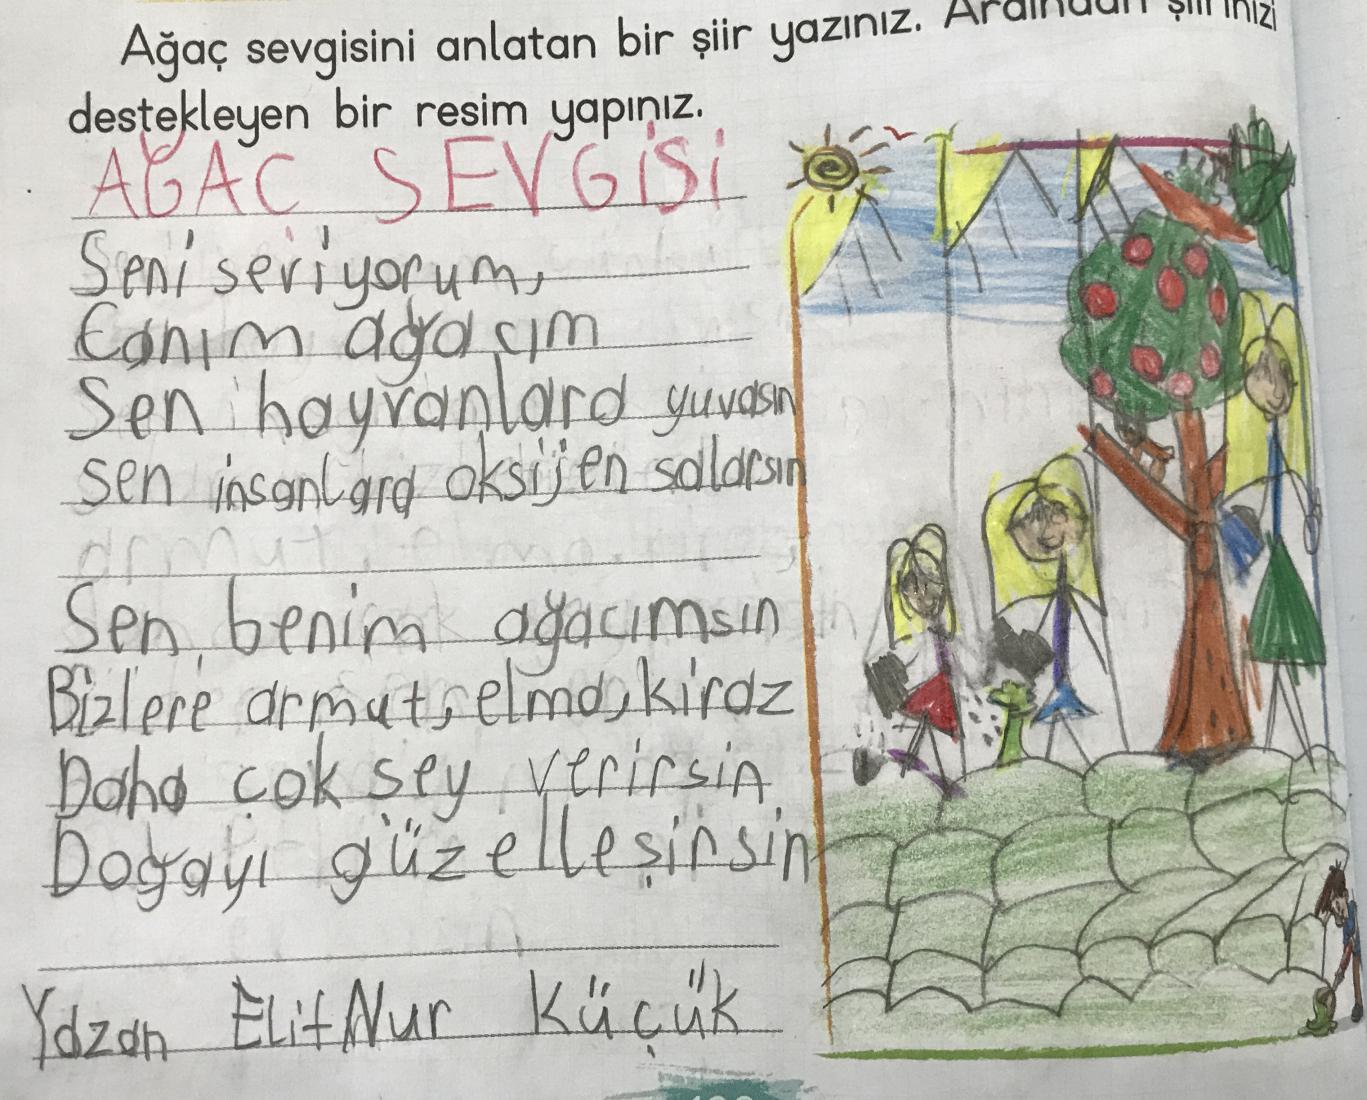 Ağaç sevgisini anlatan bir şiir yazınız. Ardından şiirinizi
destekleyen bir resim yapınız.
AĞAC SEVGİSİ
Seni seviyorum,
Canım ağacım
Sen hayvanlara yuvasın
sen insanlara oksijen salarsın
Sen benim ağacımsın
Bizlere armut, elma, kiraz
Daha çok sey verirsin
Doğayı güzelleşirsin
Yazan Elif Nur Küçük